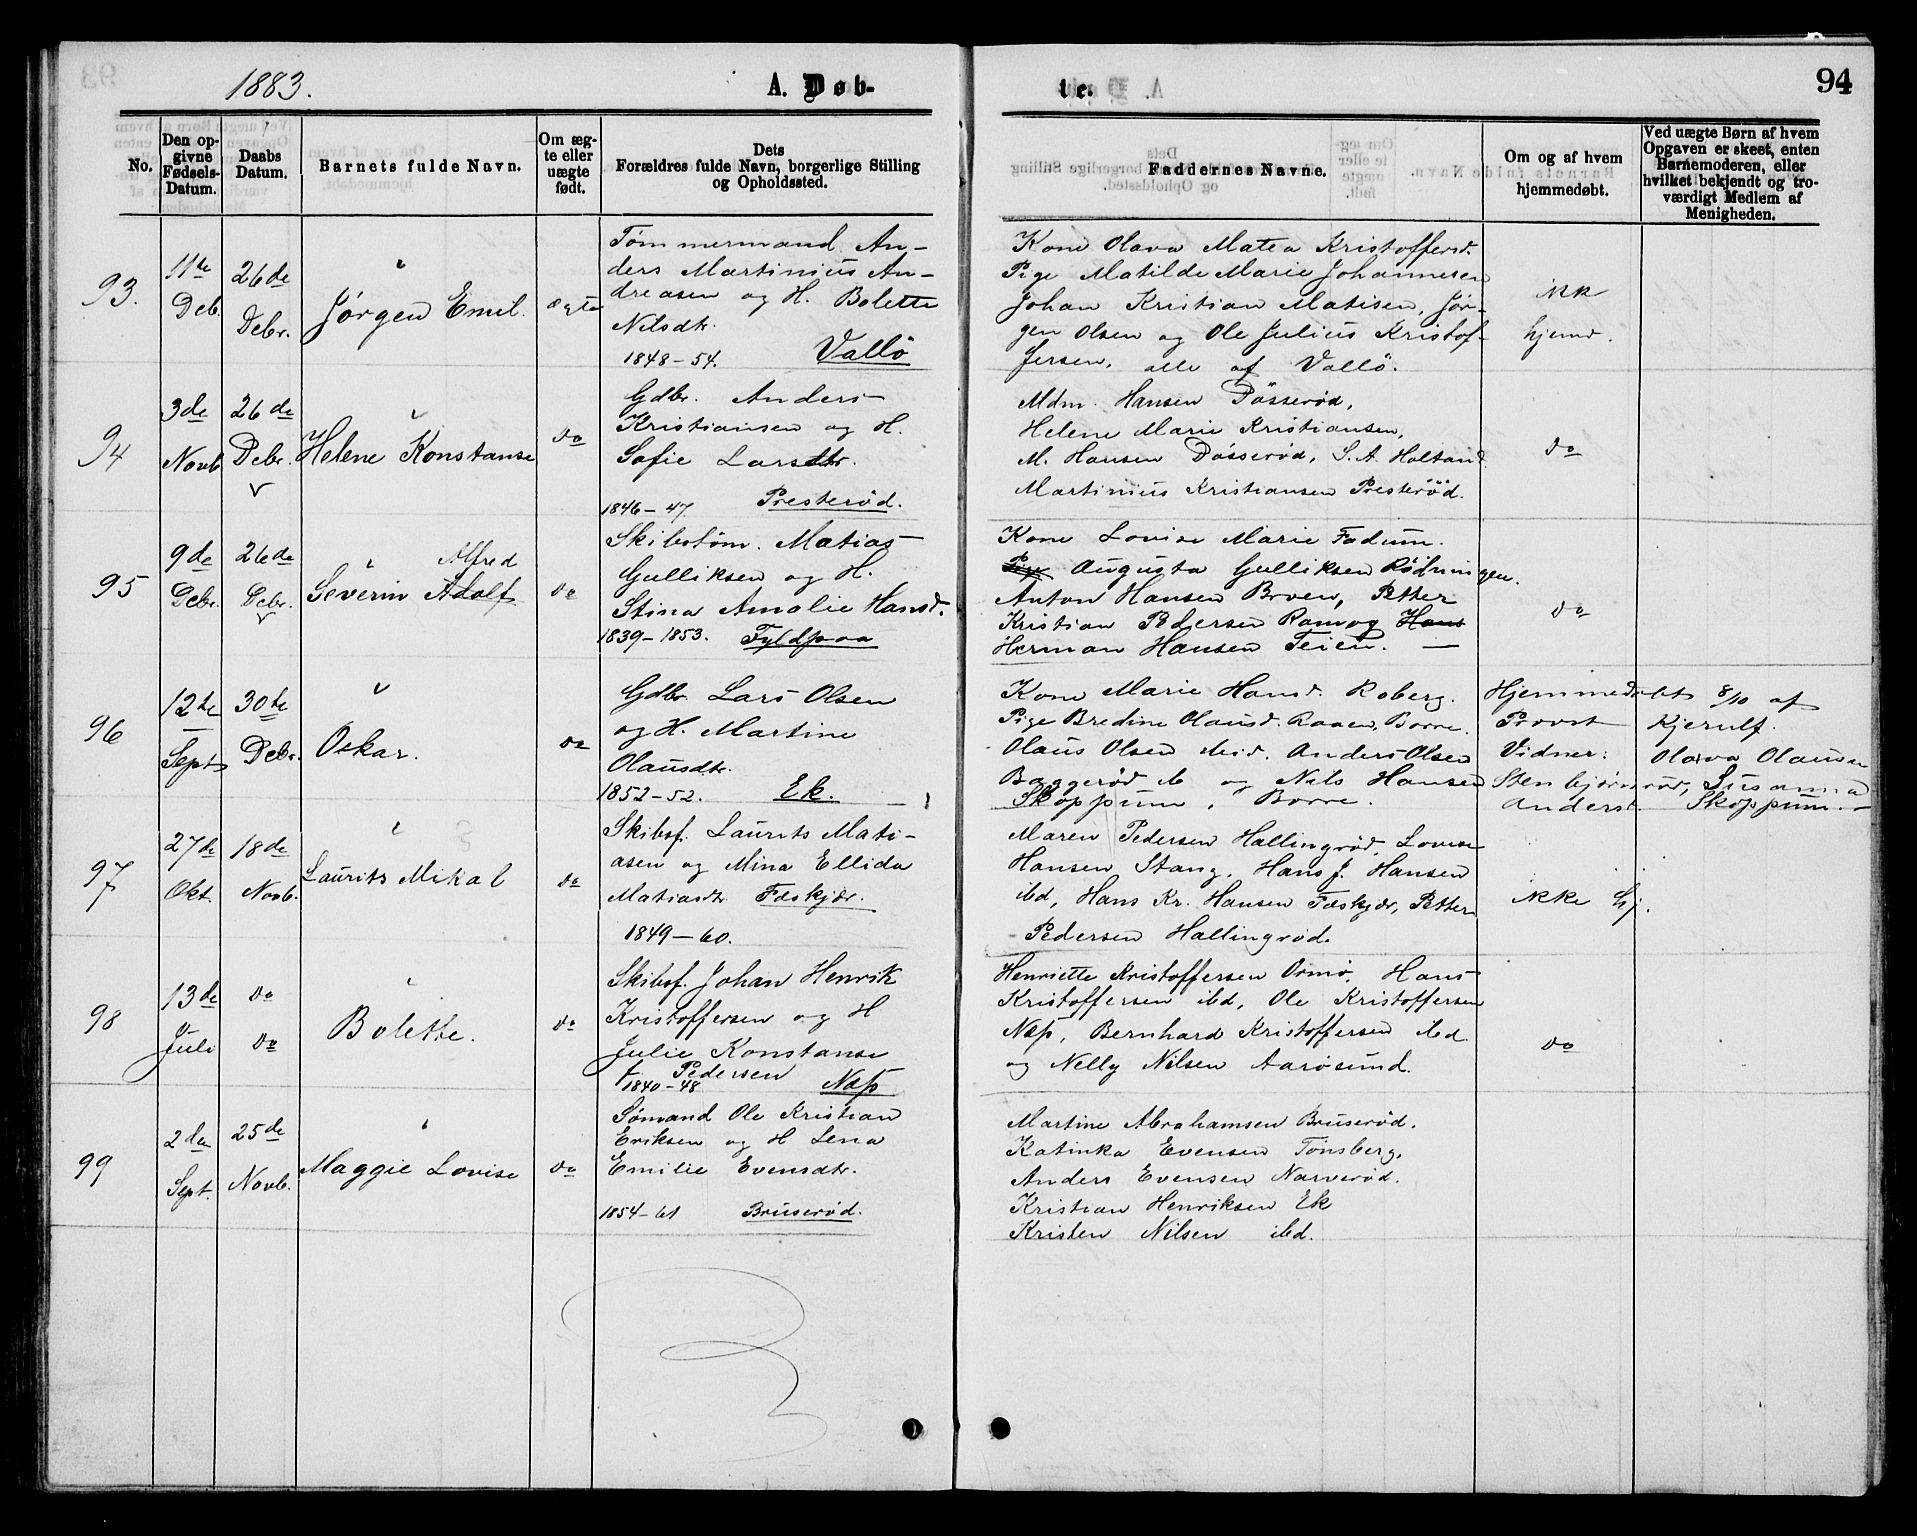 1883.
A. Døb-
te.
94
No.
Den op-
givne
Fødsels-
Datum.
Daabs
Datum.
Barnets fulde Navn.
Om æg-
te eller
uægte
født.
Dets
Forældres fulde Navn, borgerlige Stilling
og Opholdssted.
Faddernes Navne.
Om og af hvem
hjemmedøbt.
Ved uægte Børn af hvem
Opgaven er skeet, enten
Barnemoderen, eller
hvilket bekjendt og tro-
værdigt Medlem af
Menigheden.
93.
11te
Deb.
26de
Debr.
Jørgen Emil.
ægte
Tømmermand An-
ders Martinius An-
dreasen og H. Bolette
Nilsdtr.
1848-54. Vallö
Kone Olava Matea Kristoffersd.
Pige Matilde Marie Johannesen
Johan Kristian Matisen, Jør-
gen Olsen og Ole Julius Kristof-
fersen, alle af Vallö.
ikke
hjemd.
94
3de
Novb
26de
Debr.
Helene Konstanse
do
Gdbr. Anders
Kristiansen og H.
Sofie Larsdtr.
1846-47. Presterød.
Mdm. Hansen Døsserød,
Helene Marie Kristiansen,
M. Hansen Døsserød, S. A. Holtand
Martinius Kristiansen Presterød.
do
95
9de
Debr.
26de
Debr.
Alfred
Severin Adolf
do
Skibstøm. Matias
Gulliksen og H.
Stina Amalie Hansd.
1839-1853. Fyldpaa
Kone Lovise Marie Fadum.
Pige Augusta Gulliksen Rødningen.
Anton Hansen Broen, Petter
Kristian Pedersen Ramog Hans
Herman Hansen Teien. —
do
96
12te
Sept
30te
Debr.
Oskar.
do
Gdbr Lars Olsen
og H. Martine
Olausdtr.
1852-52. Ek.
Kone Marie Hansd. Roberg.
Pige Bredine Olausd. Raaen, Borre.
Olaus Olsen ibid. Anders Olsen
Baggerød ib og Nils Hansen
Skoppum, Borre.
Hjemmedøbt 8/10 af
Provst Kjerulf.
Vidner: Olava Olausen
Stenbjørnrød, Susanna
Anderst. Skoppum. —
97
27de
Okt.
18de
Novb.
Laurits Mikal
do
Skibsf. Laurits Mati-
asen og Mina Ellida
Matiasdtr Fæskjær.
1849-60.
Maren Pedersen Hallingrød, Lovise
Hansen Stang, Hans J. Hansen
ibd, Hans Kr. Hansen Fæskjær, Petter
Pedersen Hallingrød.
ikke hj.
98
13de
Juli
do
do
Bolette.
do
Skibsf. Johan Henrik
Kristoffersen og H
Julie Konstanse
Pedersen
1840-48 Næs
Henriette Kristoffersen Ormø, Hans
Kristoffersen ibd, Ole Kristoffersen
Næs, Bernhard Kristoffersen ibd
og Nelly Nilsen Aarøsund.
do
99
2den
Sept.
25de
Novb.
Maggie Lovise
do
Sømand Ole Kristian
Eriksen og H Lena
Emilie Evensdtr.
1854-61 Bruserød.
Martine Abrahamsen Bruserød.
Katinka Evensen Tønsberg,
Anders Evensen Narverød.
Kristian Henriksen Ek
Kristen Nilsen ibd.